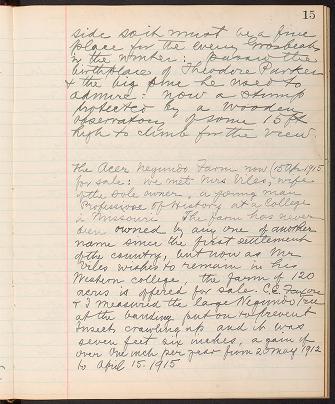 15
side so it must be a fine
place for the evening Grosbeaks
in the winter. Passed the
birthplace of Theodore Parker
& the big pine he used to
admire - now a stump
protected by a wooden
observatory of some 15 ft
high to climb for the view.
The Acer Negundo Farm now (15 Apr 1915
for sale: we met Mrs Viles, wife
of the sole owner, a young man
Professor of History at a College
in Missouri. The farm has never
been owned by any one of another
name since the first settlement
of the country, but now as Mr
Viles wishes to remain in his
Western college, the farm of 120
acres is offered for sale. C.E.
& I measured the large Negundo tree
at the banding put on to prevent
insects crawling up and it was
seven feet six inches, a gain of
over one inch per year from 20 May 1912
to April 15. 1915